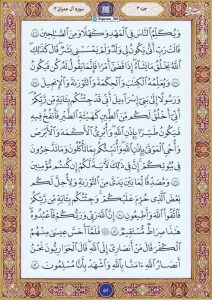 جزء ۳
سوره آل عمران ۳
وَيُكَلِّمُ ٱلنَّاسَ فِى ٱلْمَهْدِ وَكَهْلًا وَمِنَ ٱلصَّٰلِحِينَ ٤٦
قَالَتْ رَبِّ أَنَّىٰ يَكُونُ لِى وَلَدٌ وَلَمْ يَمْسَسْنِى بَشَرٌ قَالَ كَذَٰلِكِ
ٱللَّهُ يَخْلُقُ مَا يَشَآءُ إِذَا قَضَىٰٓ أَمْرًا فَإِنَّمَا يَقُولُ لَهُۥ كُن فَيَكُونُ
٤٧ وَيُعَلِّمُهُ ٱلْكِتَٰبَ وَٱلْحِكْمَةَ وَٱلتَّوْرَىٰةَ وَٱلْإِنجِيلَ
٤٨ وَرَسُولًا إِلَىٰ بَنِىٓ إِسْرَٰٓءِيلَ أَنِّى قَدْ جِئْتُكُم بِـَٔايَةٍ مِّن رَّبِّكُمْ
أَنِّىٓ أَخْلُقُ لَكُم مِّنَ ٱلطِّينِ كَهَيْـَٔةِ ٱلطَّيْرِ فَأَنفُخُ فِيهِ
فَيَكُونُ طَيْرًۢا بِإِذْنِ ٱللَّهِ وَأُبْرِئُ ٱلْأَكْمَهَ وَٱلْأَبْرَصَ
وَأُحْىِ ٱلْمَوْتَىٰ بِإِذْنِ ٱللَّهِ وَأُنَبِّئُكُم بِمَا تَأْكُلُونَ وَمَا تَدَّخِرُونَ
فِى بُيُوتِكُمْ إِنَّ فِى ذَٰلِكَ لَـَٔايَةً لَّكُمْ إِن كُنتُم مُّؤْمِنِينَ
٤٩ وَمُصَدِّقًا لِّمَا بَيْنَ يَدَىَّ مِنَ ٱلتَّوْرَىٰةِ وَلِأُحِلَّ لَكُم
بَعْضَ ٱلَّذِى حُرِّمَ عَلَيْكُمْ وَجِئْتُكُم بِـَٔايَةٍ مِّن رَّبِّكُمْ
فَٱتَّقُوا۟ ٱللَّهَ وَأَطِيعُونِ ٥٠ إِنَّ ٱللَّهَ رَبِّى وَرَبُّكُمْ فَٱعْبُدُوهُ
هَٰذَا صِرَٰطٌ مُّسْتَقِيمٌ ٥١ فَلَمَّآ أَحَسَّ عِيسَىٰ مِنْهُمُ
ٱلْكُفْرَ قَالَ مَنْ أَنصَارِىٓ إِلَى ٱللَّهِ قَالَ ٱلْحَوَارِيُّونَ نَحْنُ
أَنصَارُ ٱللَّهِ ءَامَنَّا بِٱللَّهِ وَٱشْهَدْ بِأَنَّا مُسْلِمُونَ ٥٢
۵۶